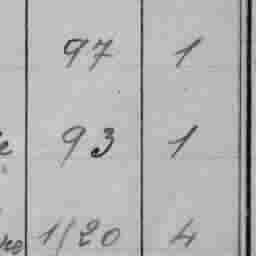 97 1
93 1
1/20 4